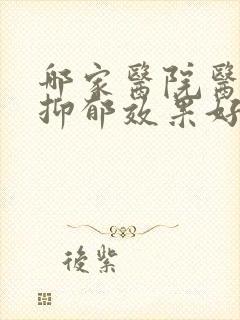 那家醫院醫
抑郁效果好
後紫